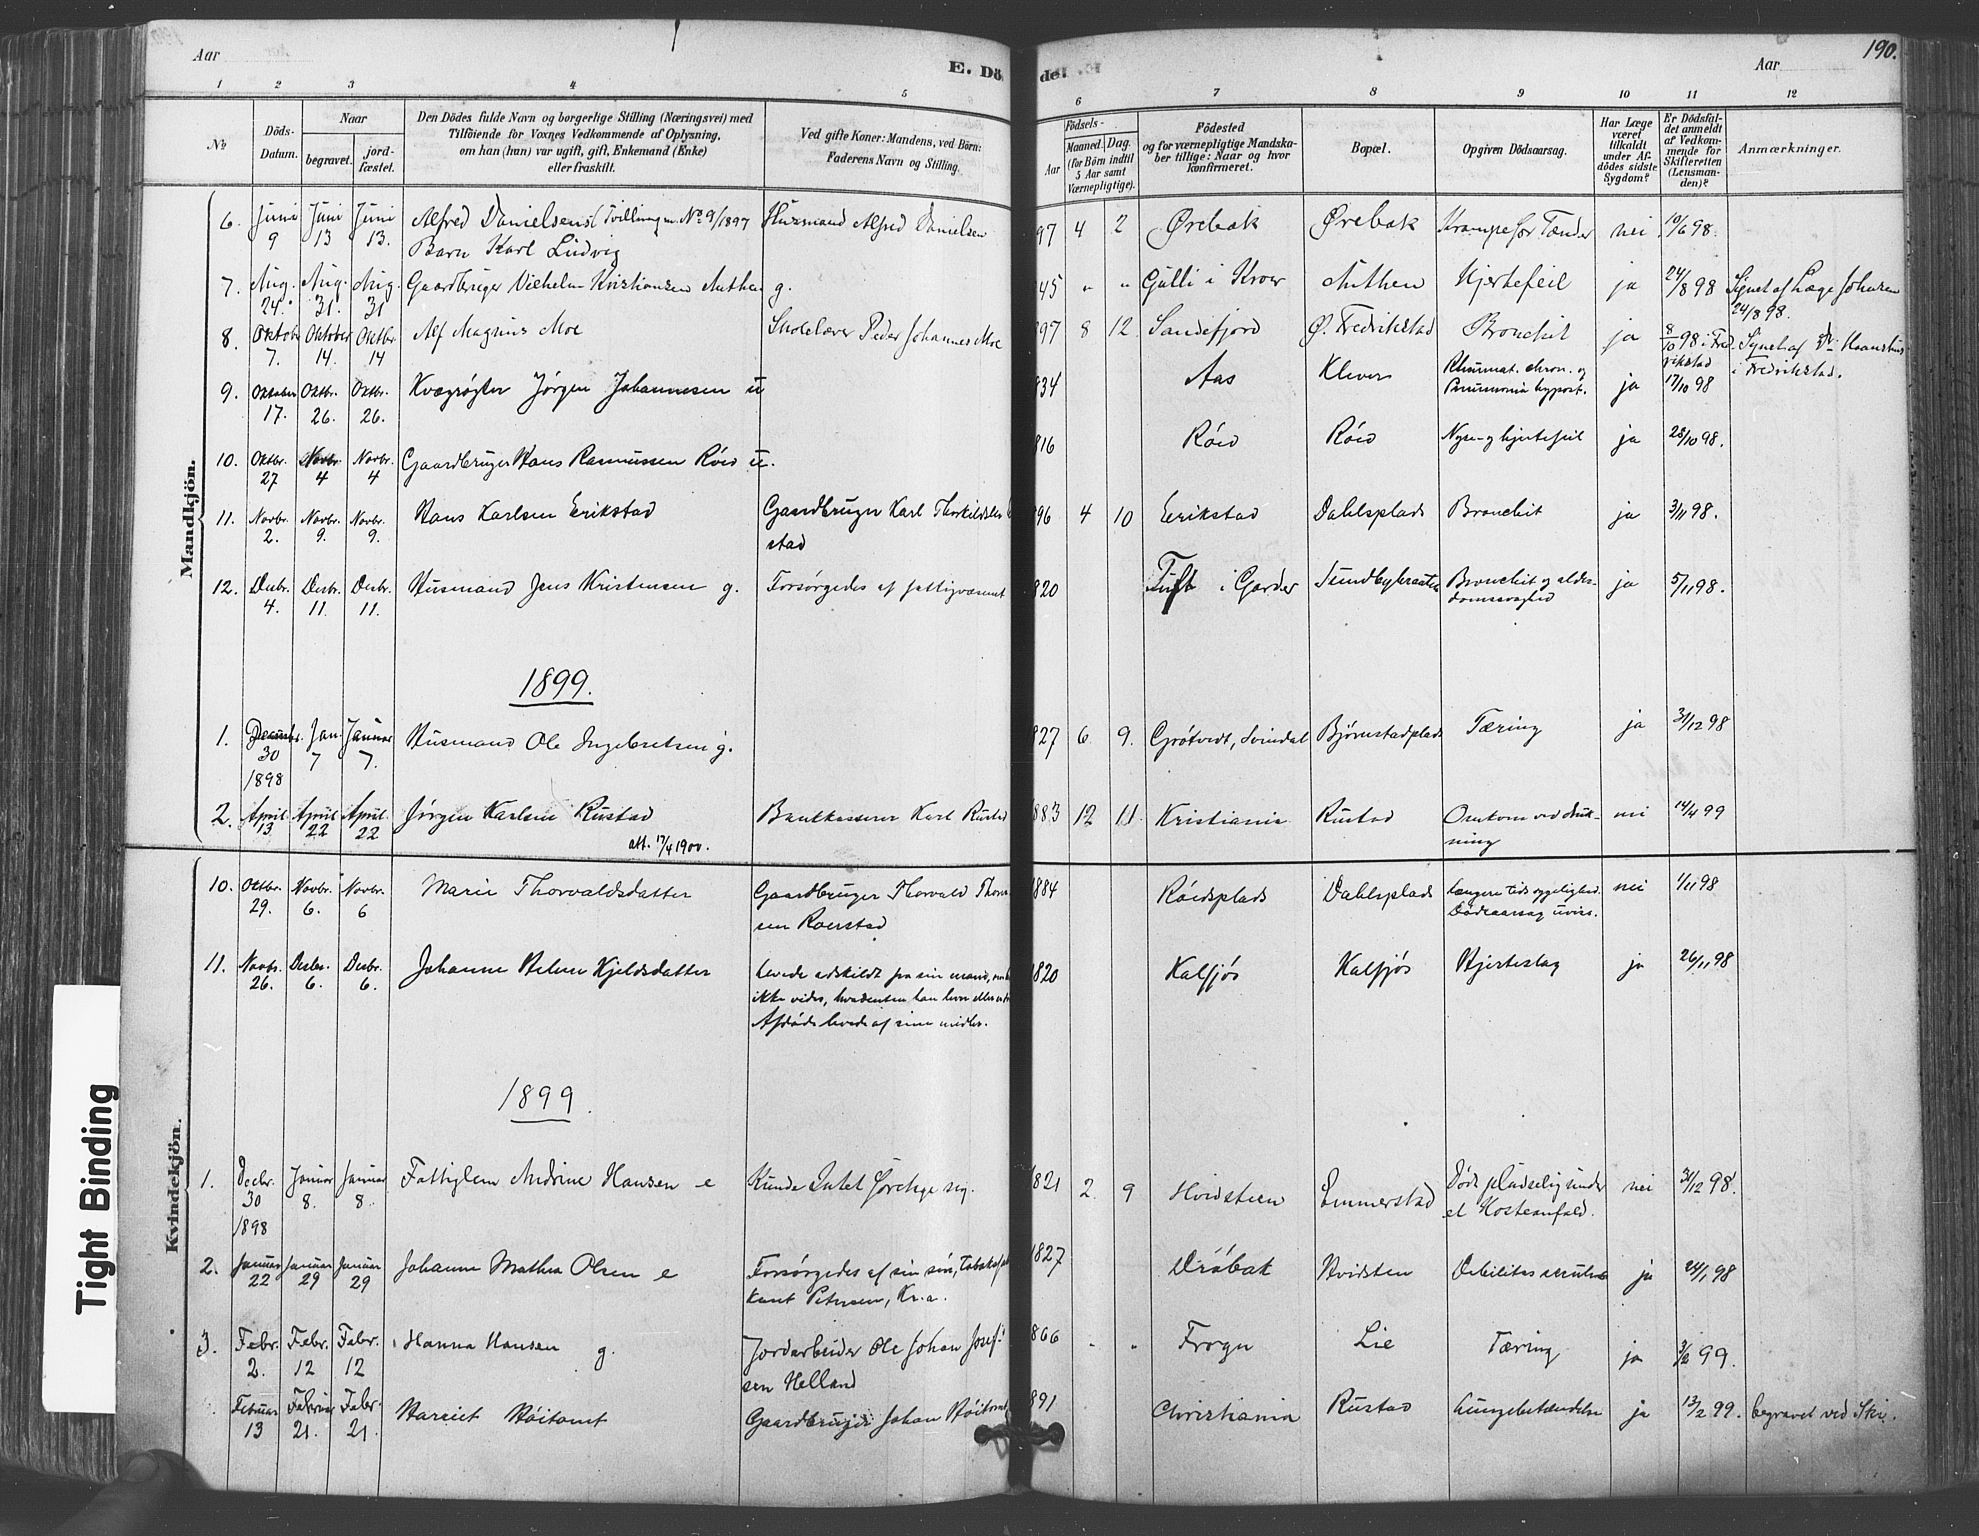 Aar
E. Dö
de.
Aar
190.
1 2 3 4 5 6 7 8 9 10 11 12
№
Döds-
Datum.
Naar
begravet.
jord-
fæstet.
Den Dödes fulde Navn og borgerlige Stilling (Næringsvei) med
Tilföiende for Voxnes Vedkommende af Oplysning,
om han (hun) var ugift, gift, Enkemand (Enke)
eller fraskilt.
Ved gifte Koner: Mandens, ved Börn:
Faderens Navn og Stilling.
Födsels-
Aar
Maaned. Dag.
(for Börn indtil
5 Aar samt
Værnepligtige).
Födested
og for værnepligtige Mandska-
ber tillige: Naar og hvor
konfirmeret.
Bopæl.
Opgiven Dödsaarsag.
Har Læge
været
tilkaldt
under Af-
dödes sidste
Sygdom?
Er Dödsfal-
det anmeldt
af Vedkom-
mende for
Skifteretten
(Lensman-
den)?
Anmærkninger.
Mandkjön.
6. Juni 9 Juni 13 Juni 13. Alfred Danielsens (Tvilling m. No 9/1897 Husmand Alfred Danielsen 97 4 2 Ørebak Ørebak Krampe for Tænder nei 10/6 98.
Barn Karl Ludvig
7. Aug. 24. Aug. 31. Aug. 31 Gaardbruger Vilhelm Kristiansen g. 45 " " Gulli i Kroer Hjertefeil ja 24/8 98 Synet af Læge Johnsen
24/8 98.
8. Oktober 7. Oktober 14. Oktbr. 14 Alf Magnus Moe Skolelærer Peder Johannes Moe 897 8 12 Sandefjord Ø. Fredrikstad Bronchit ja 8/10 98 i Fred-
rikstad
Synet af Dr.
i Fredrikstad.
9. Oktober 17. Oktbr. 26. Oktbr. 26. Kvægrøgter Jørgen Johannesen u 834 Aas Klever Rheumat. chron. og
Pneumonia hypost. ja 17/10 98
10. Oktbr. 27 Novbr. 4 Novbr. 4 Gaardbruger Hans Rasmussen Röed u. 816 Röed Röed Nyre- og hjertefeil ja 28/10 98.
11. Novbr. 2. Novbr. 9. Novbr. 9. Hans Karlsen Erikstad Gaardbruger Karl
stad
896 4 10 Erikstad Dahlsplads Bronchit ja 3/11 98.
12. Decbr. 4. Decbr. 11. Decbr. 11. Husmand Jens Kristensen g. Forsørgedes af fattigvæsenet 820 Tuft i Garder Bronchit og alder-
domssvaghed ja 5/11 98.
1899.
1. Decembr. 30 1898 Jan. 7 Januar 7. Husmand Ole Ingebretsen g. 827 6 9. Grøtvedt, Svindal Bjørnstadplads Tæring ja 31/12 98
2. April 13 April 22 April. 22 Jörgen Karlsen Rustad Bankkasserer Karl Rustad 883 12 11 Kristiania Rustad Omkom ved druk-
ning nei 14/4 99
att. 17/4 1900.
Kvindekjön.
10. Octbr. 29. Novbr. 6. Novbr. 6 Marie Thorvaldsdatter Gaardbruger Thorvald Thor
sen
1884 Röedsplads Dahlsplads Længere Tids sygelighed.
Dödsaarsag uviss. nei 1/11 98
11. Novbr. 26. Decbr. 6. Decbr. 6. Johanne Helene Kjeldsdatter Levede adskildt fra sin mand,
ikke vides, hvadenten han lever eller er
Afdöde levede af sine midler.
1820 Kalfjös Kalfjös Hjerteslag ja 26/11 98
1899.
1. Decbr. 30 1898 Januar 8. Januar 8. Fattiglem Andrine Hansen e Kunde Intet foretage sig. 1821 2. 9 Hvidsteen Emmerstad Döde pludselig under
et Hosteanfald. nei 31/12 98.
2. Januar 22 Januar 29 Januar 29 Johanne Mathea Olsen e Forsørgedes af sin sön, Tobaksfab
kant Petersen, Kr.a.
1827 Dröbak Hvidsten Debilitas senilis ja 24/1 98
3. Febr. 2. Febr. 12 Febr. 12 Hanna Hansen g. Jordarbeider Ole Johan Josef-
sen Helland
866 " " Frogn Lie Tæring ja 3/2 99.
Februar 13 Februar 21. Febr. 21. Harriet Höitomt Gaardbruger Johan Höitomt 891 Christiania Rustad Lungebetændelse ja 13/2 99. begravet ved Ski.
Tight Binding